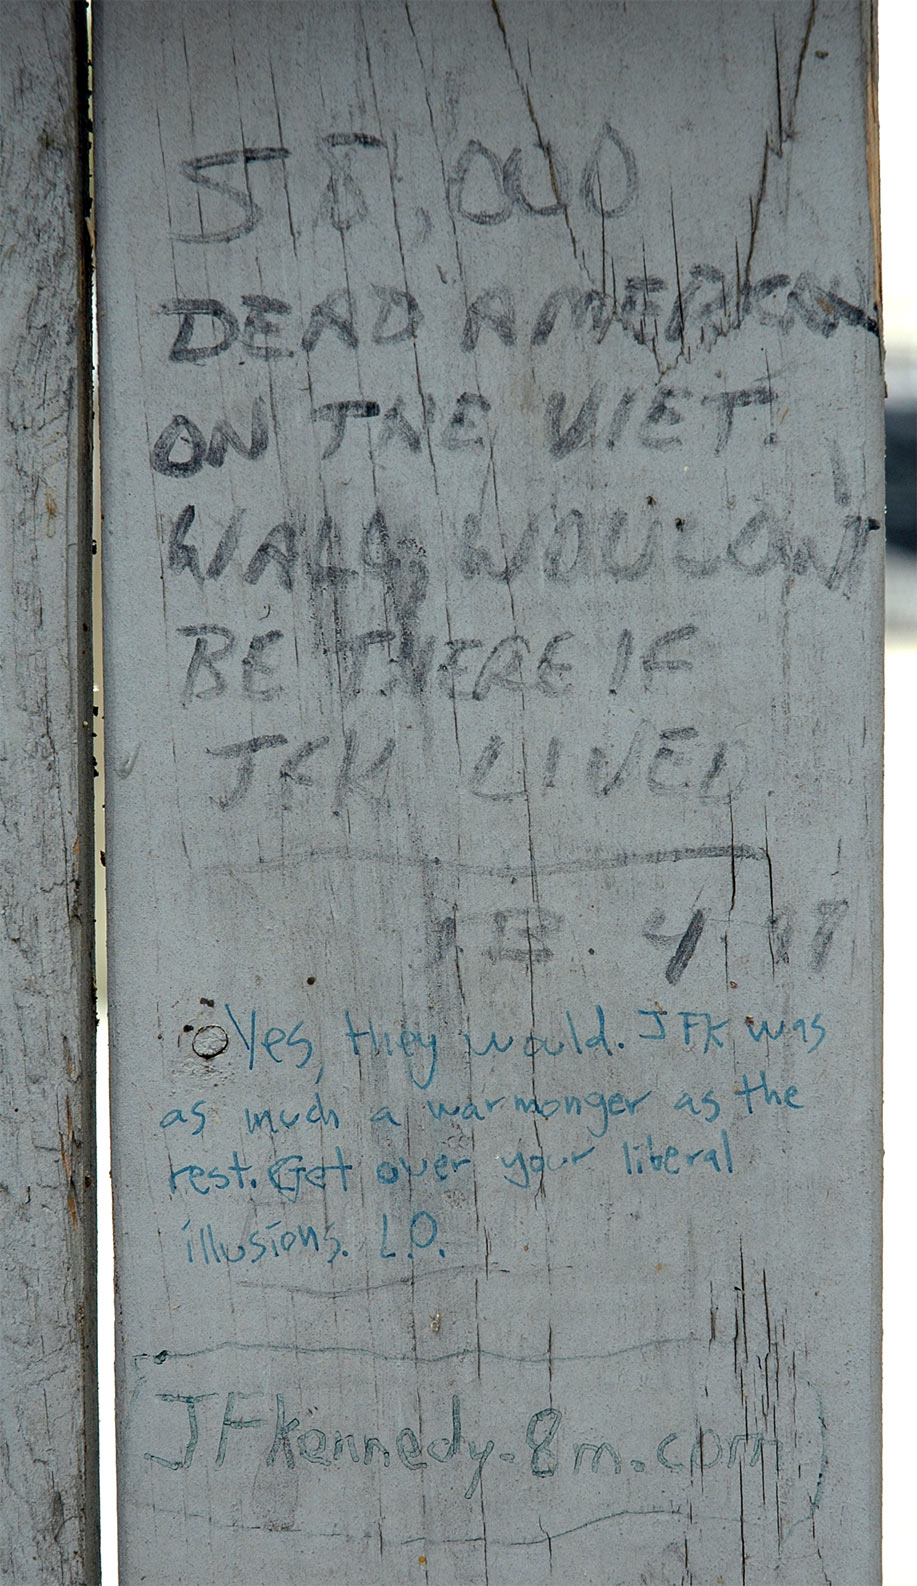 58,000
DEAD AMERICAN
ON THE VIET.
WALL, WOULDN'T
BE THERE IF
JFK LIVED
Yes, they would. JFK was
as much a warmonger as the
rest. Get over your liberal
illusions. L.O.
JFKennedy.8m.com